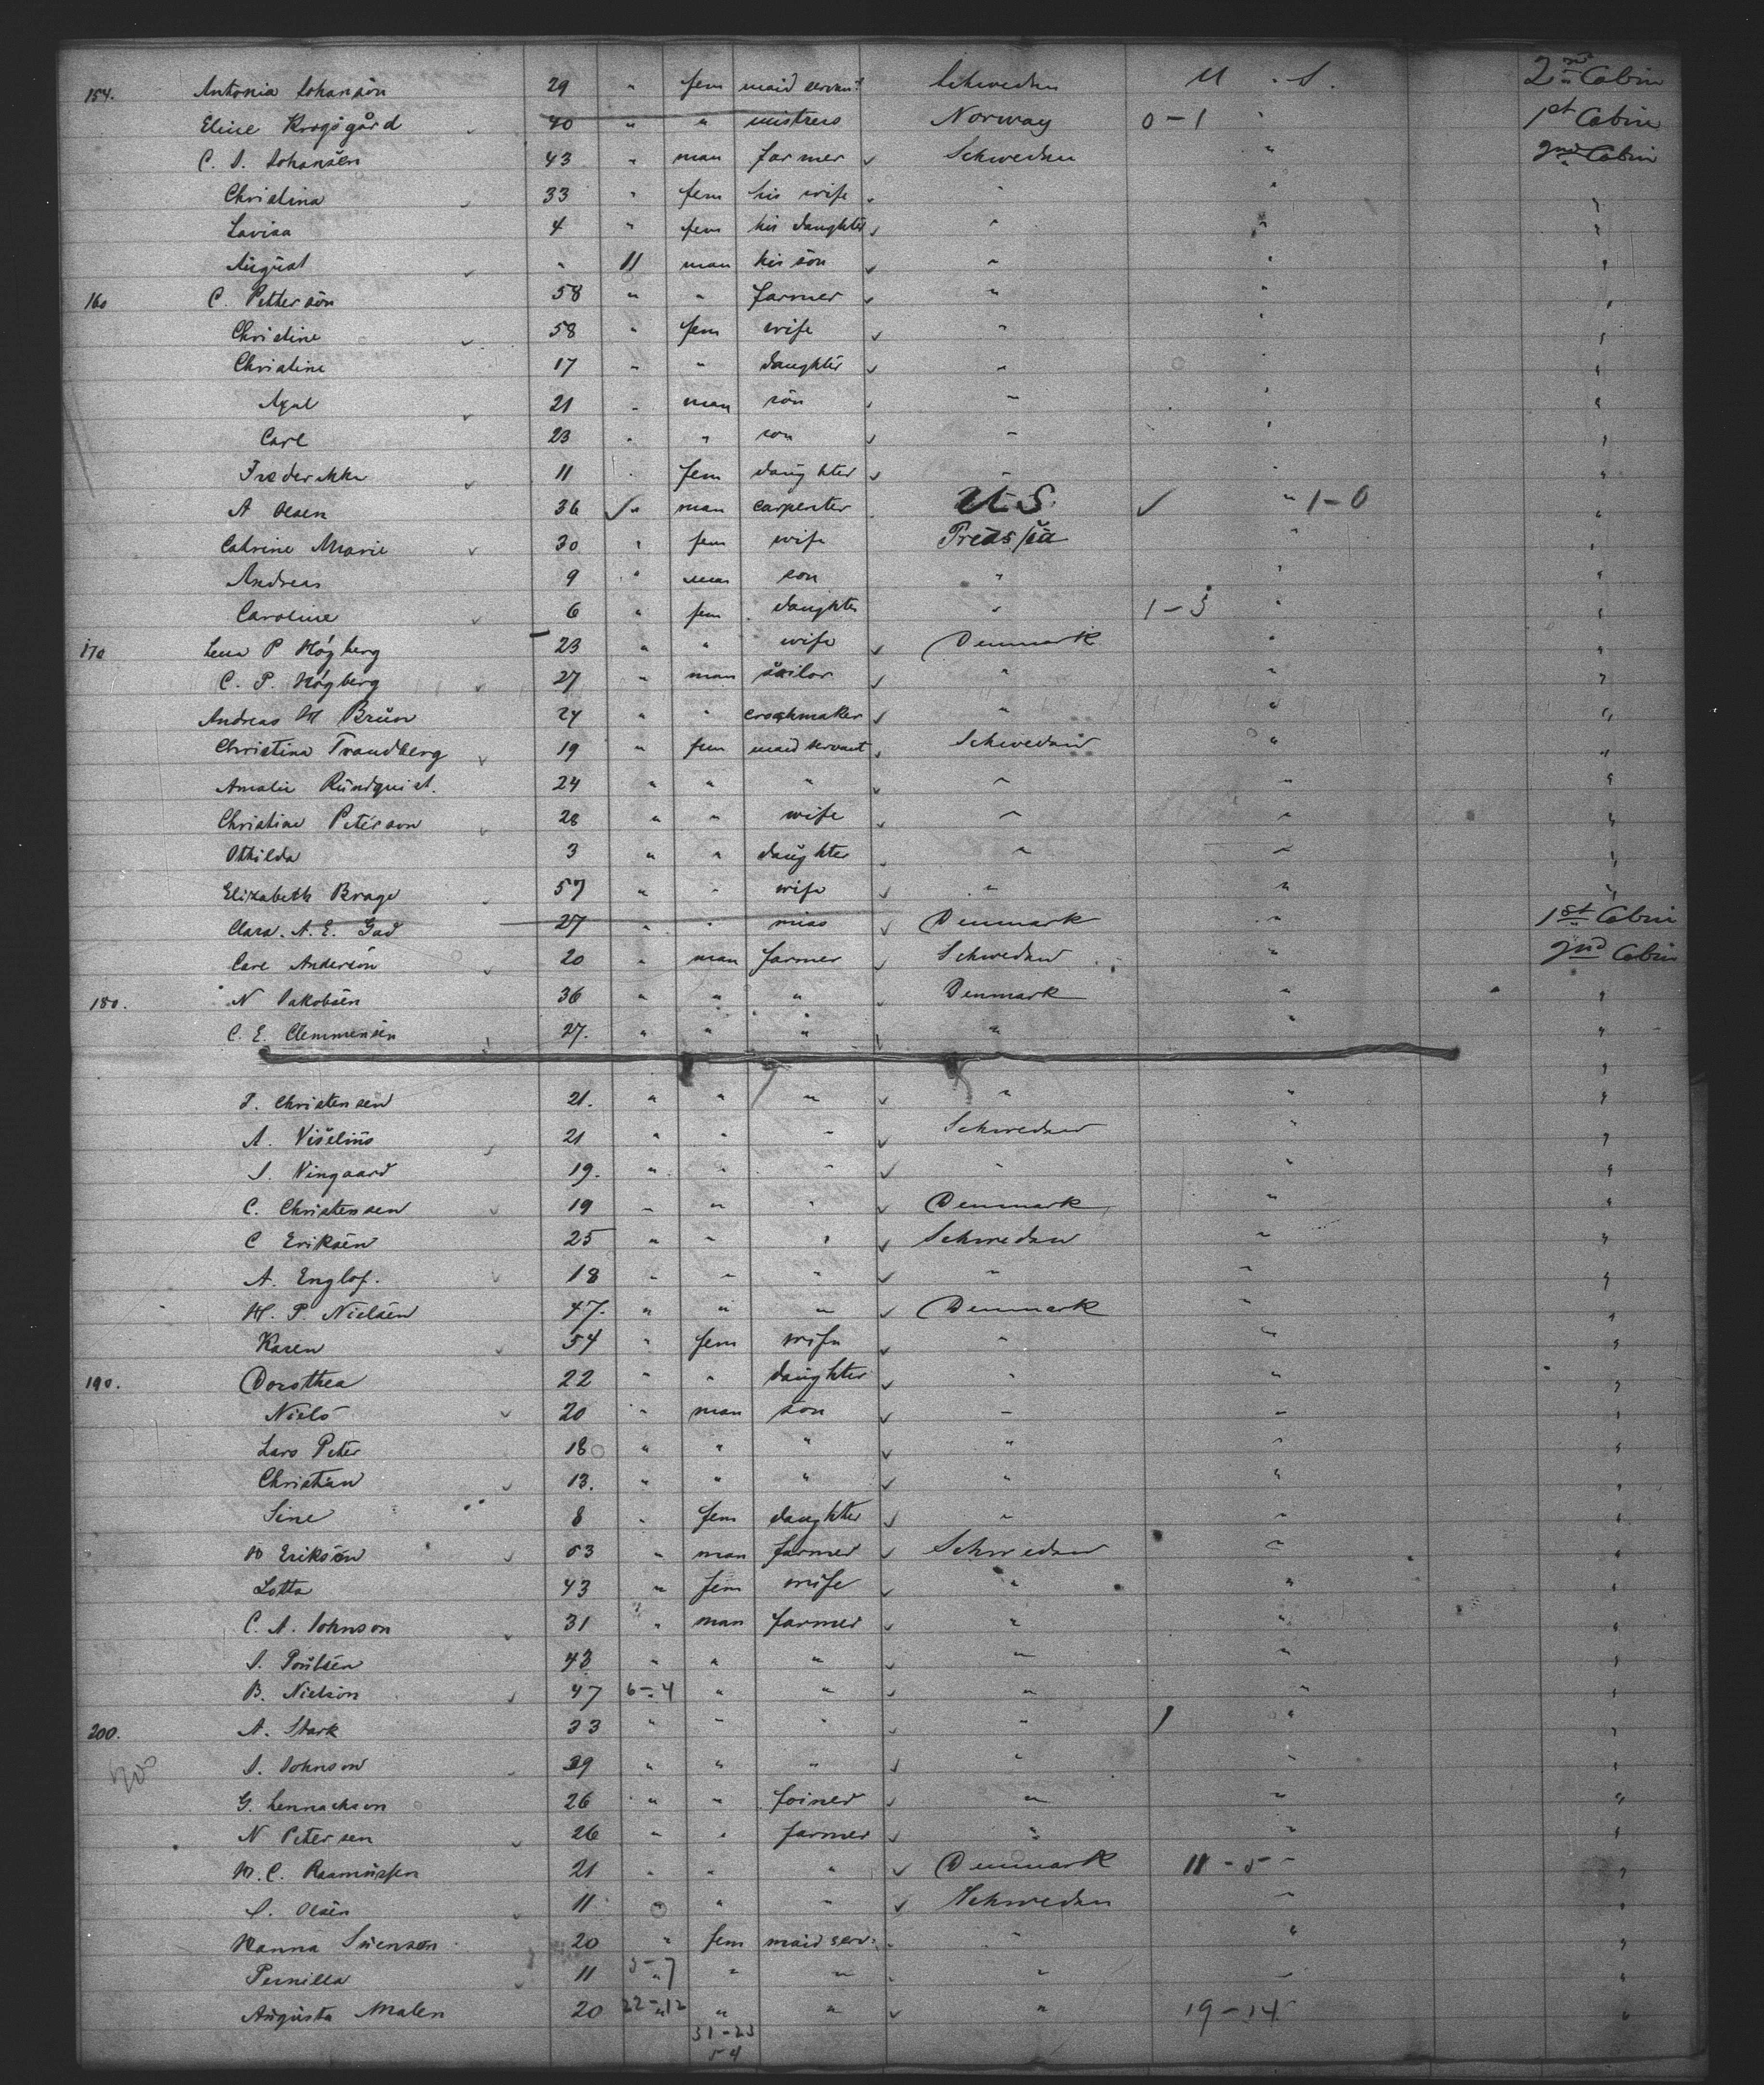 154. Antonia Johansön 29 " fem maid servant Schweden U. S. 2nd Cabin
Eline Krogsgård 40 " " mistress Norway 0-1 " 1st Cabin
C. J. Johansen 43 " man farmer Schweden " 2nd Cabin
Christina 33 " fem his wife " " "
Lovisa 4 " fem his daughter " " "
August " 11 man his son " " "
160 C. Petterson 58 " " farmer " " "
Christine 58 " fem wife " " "
Christine 17 " " daughter " " "
Axel 21 " man son " " "
Carl 23 " " son " " "
Frederikke 11 " fem daughter " " "
A Olsen 36 " man carpenter U S. " 1-0 "
Catrine Marie 30 " fem wife Preussia " "
Andreas 9 " man son " " "
Caroline 6 " fem daughter " 1-3 " "
170 Lena P Högberg 23 " " wife Denmark " "
C. P. Högberg 27 " man sailor " " "
Andreas H Brün 24 " " " " "
Christina Trandberg 19 " fem maid servant Schweden " "
Amalie Ründquist. 24 " " " " " "
Christine Peterson 28 " " wife " " "
Othilda 3 " " daughter " " "
Elizabeth Brage 57 " " wife " " "
Clara. A. E. Gad 27 " " miss Denmark " 1st Cabin
Carl Anderson 20 " man farmer Schweden " 2nd Cabin
180. N Jakobsen 36 " " " Denmark " "
C. E. Clemmensen 27. " " " " " "
P. Christensen 21. " " " " " "
A. Viselius 21 " " " Schweden " "
J. Vingaard 19. " " " " " "
C. Christensen 19 " " " Denmark " "
C Eriksen 25 " " " Schweden " "
A. Englof. 18 " " " " " "
H. P. Nielsen 47. " " " Denmark " "
Karen 54 " fem wife " " "
190. Dorothea 22 " " daughter " " "
Niels 20 " man son " " "
Lars Peter 18 " " " " " "
Christian 13. " " " " " "
Sine 8 " fem daughter " " "
Erikson 53 " man farmer Schweden " "
Lotta 43 " fem wife " " "
C. A. Johnson 31 " man farmer " " "
J. Poulsen 43 " " " " " "
B. Nielson 47 6-4 " " " " "
200. A. Stark 33 " " " " 1 " "
200 J. Johnson 39 " " " " " "
G. Lennackson 26 " " Joiner " " "
N Petersen 26 " " farmer " " "
H. C. Rasmussen 21 " " " Denmark 11-5 " "
Olsen 11 " " " Schweden " "
Hanna Svenson 20 " fem maid serv. " " "
Pernilla 11 3-7 " " " " "
Augusta Malen 20 22-12 " " " 19-14 "
31-23
54